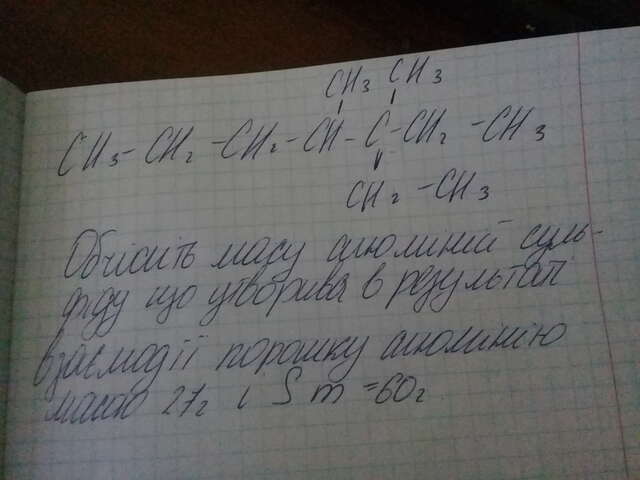 CH3 CH3
CH3 - CH2 - CH2 - CH - C - CH2 - CH3
CH2 - CH3
Обчісить масу алюміній суль-
фіду що утворива в результаті
взаємодії порошку алюмінію
масою 27г і S m = 60г